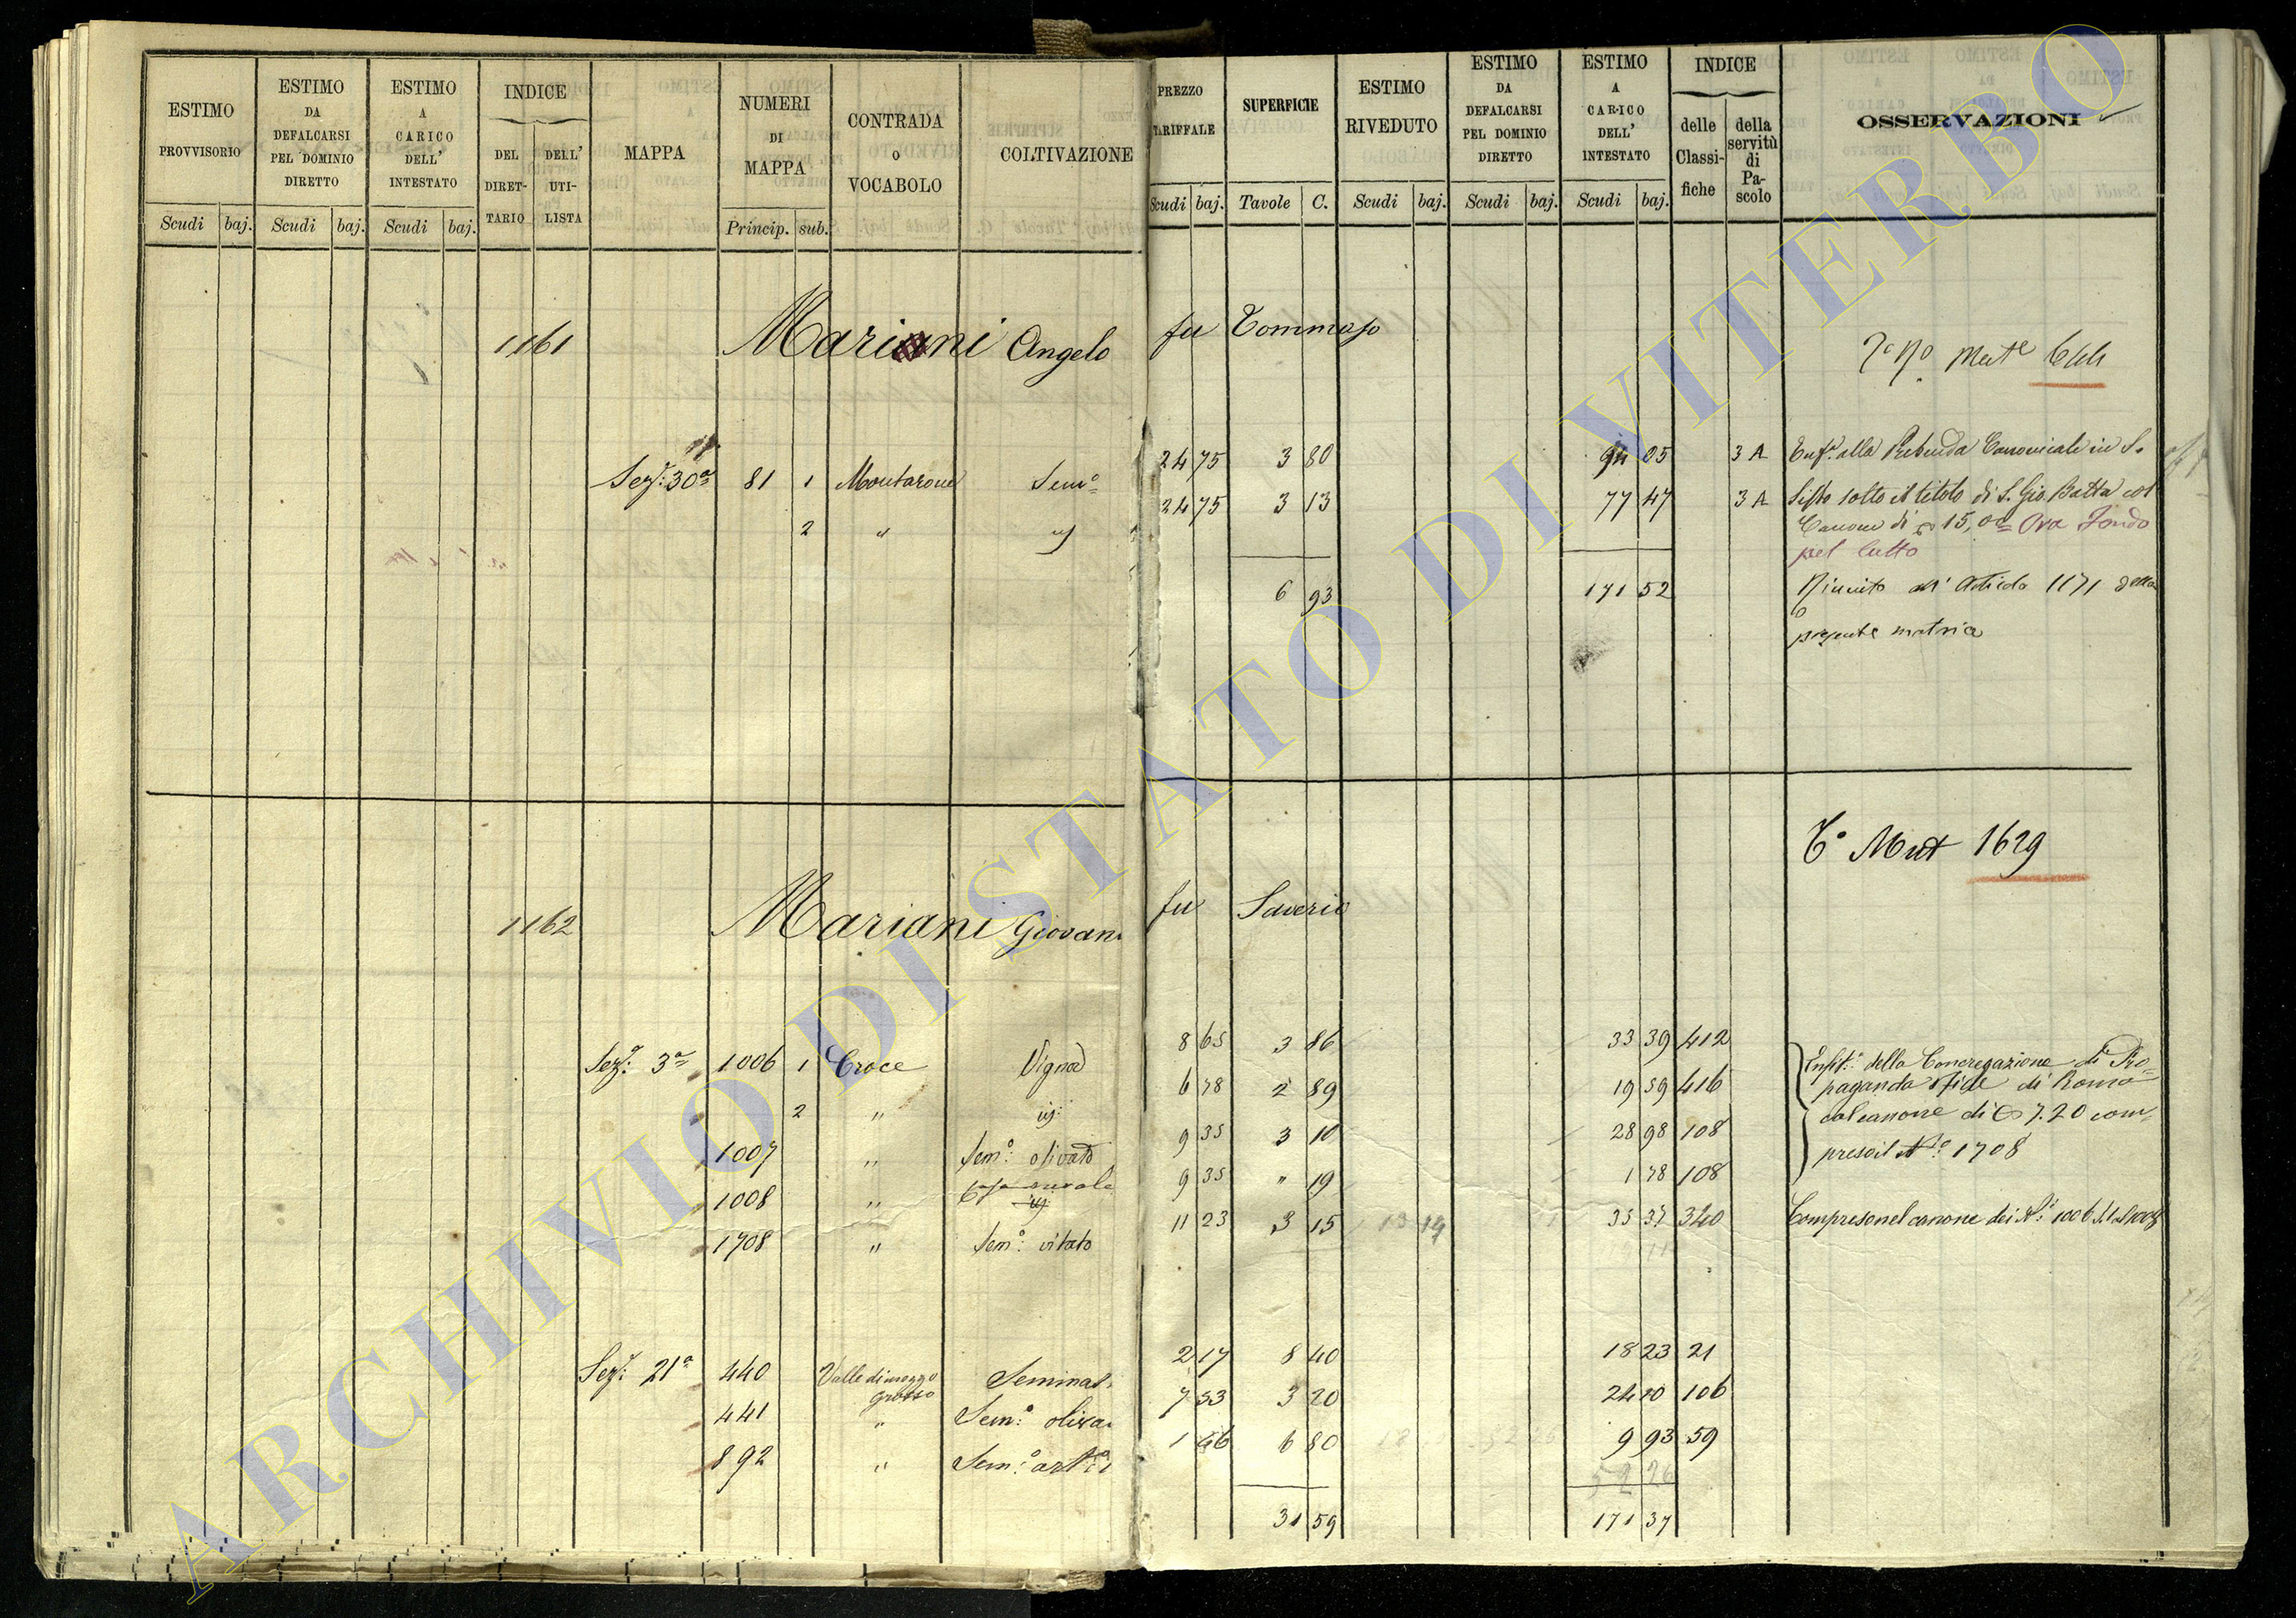 ESTIMO PROVVISORIO | ESTIMO DA DEFALCARSI PEL DOMINIO DIRETTO | ESTIMO A CARICO DELL' INTESTATO | INDICE DEL DIRETTARIO | DELL' UTILISTA | MAPPA | NUMERI DI MAPPA | CONTRADA O VOCABOLO | COLTIVAZIONE | PREZZO TARIFFALE | SUPERFICIE | ESTIMO RIVEDUTO | ESTIMO DA DEFALCARSI PEL DOMINIO DIRETTO | ESTIMO A CARICO DELL' INTESTATO | INDICE delle Classifiche | della servitù di Pascolo | OSSERVAZIONI
Scudi | baj. | Scudi | baj. | Scudi | baj. | Princip. | sub. | Scudi | baj. | Tavole | C. | Scudi | baj. | Scudi | baj. | Scudi | baj.
1161 Mariani Angelo fu Tommaso
Sez: 30a 81 1 Montarone Sem° 24 75 3 80 94 05 3 A
2 " 24 75 3 13 77 47 3 A
Enf. alla Canonicale in S.
Sisto sotto il titolo di S. Gio Batta col
Canone di 15, Ora Fondo
pel tutto
6 93 171 52
Riunito all' Articolo 1171 della
presente matrice
T° Mut 1629
1162 Mariani Giovanni fu Saverio
Sez: 3a 1006 1 Croce Vigna 8 65 3 86 33 39 412
2 " 6 78 2 89 19 59 416
1007 " Sem° olivato 9 35 3 10 28 98 108
1008 " Casa rurale 9 35 " 19 1 78 108
1708 " Sem° vitato 11 23 3 15 35 37 340
Enfit: della Congregazione di Pro=
paganda fide di Roma
col canone di 7.20 com=
preso il N° 1708
Compreso nel canone dei N: 1006
Sez: 21a 440 Valle di mezzo grosso Seminat. 2 17 8 40 18 23 21
441 " Sem° oliva. 7 53 3 20 24 10 106
892 " Sem° 1 46 6 80 9 93 59
52 26
31 59 171 37
ARCHIVIO DI STATO DI VITERBO